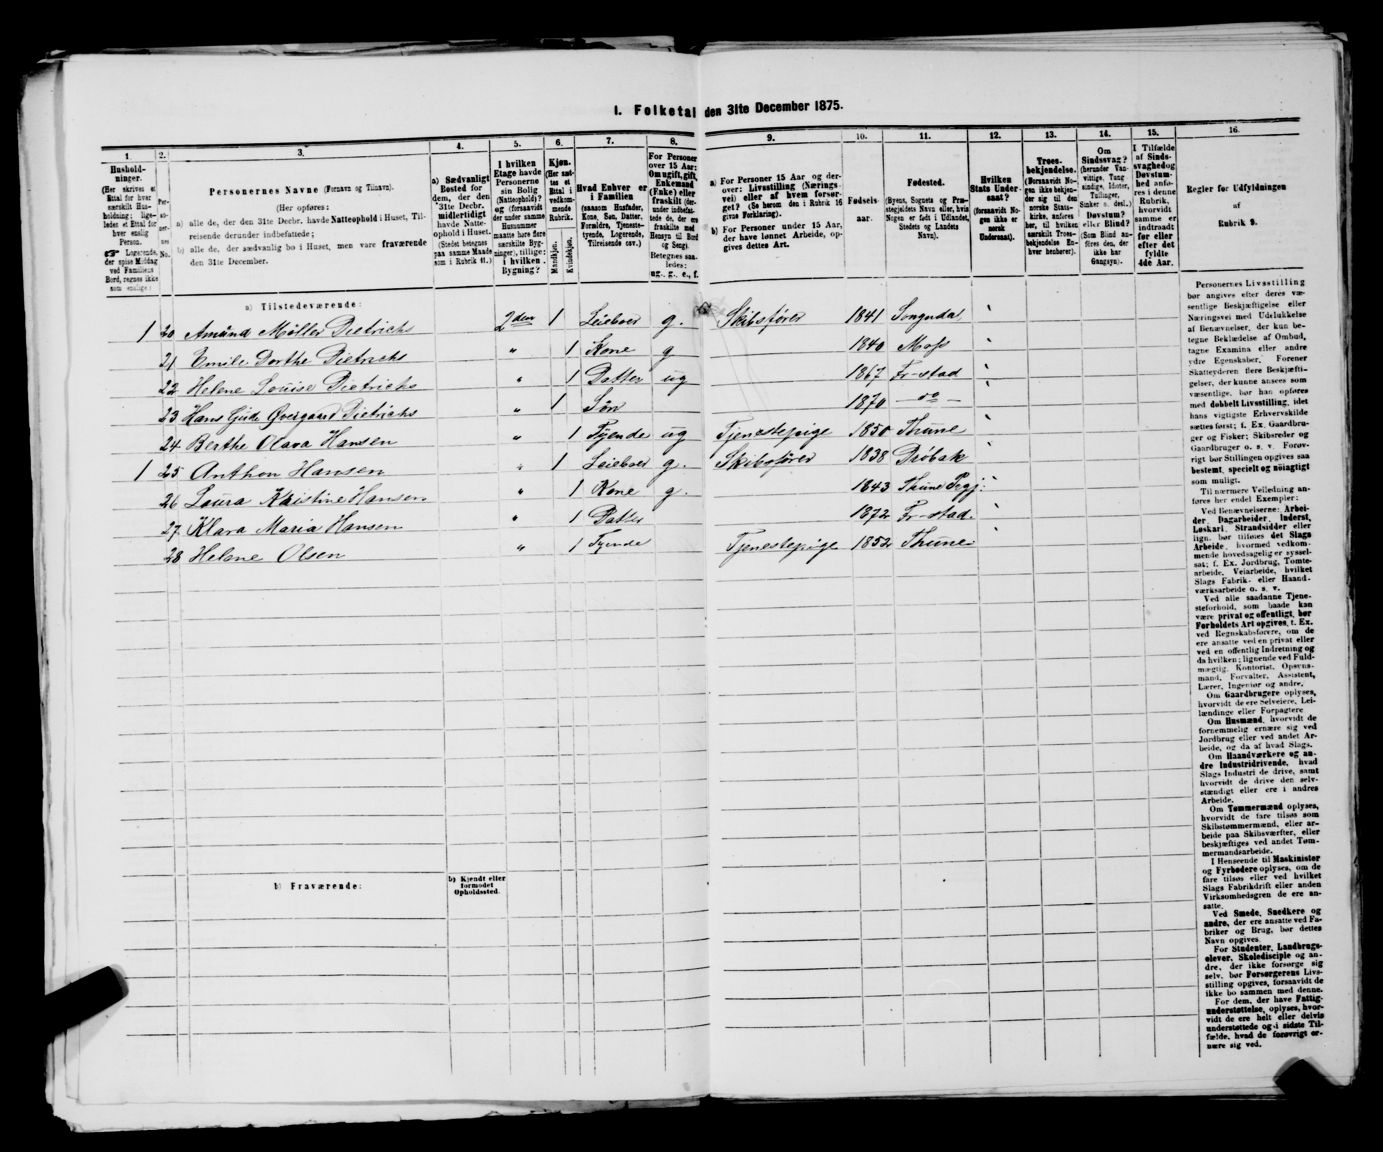 I. Folketal den 31te December 1875.
1.
2.
3.
4.
5.
6.
7.
8.
9.
10.
11.
12.
13.
14.
15.
16.
Hushold-
ninger.
(Her skrives et
Ettal for hver
særskilt Hus-
holdning; lige-
ledes et Ettal for
hver enslig
Person.
☞ Logerende,
der spise Middag
ved Familiens
Bord, regnes ikke
som enslige.)
Per-
so-
ner-
nes
No.
Personernes Navne (Fornavn og Tilnavn).
(Her opføres:
a) alle de, der den 31te Decbr. havde Natteophold i Huset, Til-
reisende derunder indbefattede;
b) alle de, der sædvanlig bo i Huset, men vare fraværende
den 31te December.
a) Sædvanligt
Bosted for
dem, der den
31te Decbr.
midlertidigt
havde Natte-
ophold i Huset.
(Stedet betegnes
paa samme Maade
som i Rubrik 11.)
I hvilken
Etage havde
Personerne
sin Bolig
(Natteophold)?
og (forsaavidt
der under samme
Husnummer
maatte høre flere
særskilte Byg-
ninger), tillige:
i hvilken
Bygning?
Kjøn.
(Her sæt-
tes et
Ettal i
vedkom-
mende
Rubrik.
Mandkjøn.
Kvindekjøn.
Hvad Enhver er
i Familien
(saasom Husfader,
Kone, Søn, Datter,
Forældre, Tjeneste-
tyende, Logerende,
Tilreisende osv.)
For Personer
over 15 Aar:
Om ugift, gift,
Enkemand
(Enke) eller
fraskilt (der-
under indbefat-
tede de, der ere
fraskilte med
Hensyn til Bord
og Seng).
Betegnes saa-
ledes:
ug., g., e., f.
a) For Personer 15 Aar og der-
over: Livsstilling (Nærings-
vei) eller af hvem forsør-
get? (Se herom den i Rubrik 16
givne Forklaring).
b) For Personer under 15 Aar,
der have lønnet Arbeide, op-
gives dettes Art.
Fødsels-
aar.
Fødested.
(Byens, Sognets og Præ-
stegjeldets Navn eller, hvis
Nogen er født i Udlandet,
Stedets og Landets
Navn).
Hvilken
Stats Under-
saat?
(forsaavidt No-
gen ikke er
norsk
Undersaat).
Troes-
bekjendelse.
(Forsaavidt No-
gen ikke bekjen-
der sig til den
norske Stats-
kirke, anføres
her, til hvilken
særskilt Troes-
bekjendelse En-
hver henhører).
Om
Sindssvag?
(herunder Van-
vittige, Tung-
sindige, Idioter,
Tullinger,
Sinker o. desl.)
Døvstum?
eller Blind?
(Som Blind an-
føres den, der
ikke har
Gangsyn).
I Tilfælde
af Sinds-
svaghed og
Døvstum-
hed anfø-
res i denne
Rubrik,
hvorvidt
samme er
indtraadt
før eller
efter det
fyldte
4de Aar.
Regler for Udfyldningen
af
Rubrik 9.
a) Tilstedeværende:
1 20 Amund Møller Dietrichs 2den 1 Leieboer g. Skibsfører 1841 Songndal
21 Emile Dorthe Dietrichs " 1 Kone g 1840 Moss
22 Helene Louise Dietrichs " 1 Datter ug 1867 Fr-stad
23 Hans Gude Øvergaard Dietrichs " 1 Søn 1870 - do -
24 Berthe Olava Hansen " 1 Tyende ug Tjenestepige 1850 Thune
1 25 Anthon Hansen " 1 Leieboer g. Skibsfører 1838 Drøbak
26 Laura Kristine Hansen " 1 Kone g. 1843 Thune Pregj:
27 Klara Maria Hansen " 1 Datter 1872 Fr-stad.
28 Helene Olsen " 1 Tyende Tjenestepige 1852 Thune
b) Fraværende:
b) Kjendt eller
formodet
Opholdssted.
Personernes Livsstilling
bør angives efter deres væ-
sentlige Beskjæftigelse eller
Næringsvei med Udelukkelse
af Benævnelser, der kun be-
tegne Beklædelse af Ombud,
tagne Examina eller andre
ydre Egenskaber. Forener
Skatteyderen flere Beskjæfti-
gelser, der kunne ansees som
væsentlige, bør han opføres
med dobbelt Livsstilling, idet
hans vigtigste Erhvervskilde
sættes først; f. Ex. Gaardbru-
ger og Fisker; Skibsreder og
Gaardbruger o. s. v. Forøv-
rigt bør Stillingen opgives saa
bestemt, specielt og nøiagtigt
som muligt.
Til nærmere Veiledning an-
føres her endel Exempler:
Ved Benævnelserne: Arbei-
der, Dagarbeider, Inderst,
Løskarl, Strandsidder eller
lign. bør tilføies det Slags
Arbeide, hvormed vedkom-
mende hovedsagelig er syssel-
sat; f. Ex. Jordbrug, Tomte-
arbeide, Veiarbeide, hvilket
Slags Fabrik- eller Haand-
værksarbeide o. s. v.
Ved alle saadanne Tjene-
steforhold, som baade kan
være privat og offentligt, bør
Forholdets Art opgives, t. Ex.
ved Regnskabsførere, om de
ere ansatte ved en privat eller
ved en offentlig Indretning og
da hvilken; lignende ved Fuld-
mægtig, Kontorist, Opsyns-
mand, Forvalter, Assistent,
Lærer, Ingeniør og andre.
Om Gaardbrugere oplyses,
hvorvidt de ere Selveiere, Lei-
lændinge eller Forpagtere
Om Husmænd, hvorvidt de
fornemmelig ernære sig ved
Jordbrug eller ved andet Ar-
beide, og da af hvad Slags.
Om Haandværkere og an-
dre Industridrivende, hvad
Slags Industri de drive, samt
hvorvidt de drive den selv-
stændigt eller ere i andres
Arbeide.
Om Tømmermænd oplyses,
hvorvidt de fare tilsøs som
Skibstømmermænd, eller ar-
beide paa Skibsværfter, eller
beskjæftiges ved andet Tøm-
mermandsarbeide.
I Henseende til Maskinister
og Fyrbødere oplyses, om de
fare tilsøs eller ved hvilket
Slags Fabrikdrift eller anden
Virksomhedsgren de ere an-
satte.
Ved Smede, Snedkere og
andre, der ere ansatte ved Fa-
briker og Brug, bør dettes
Navn opgives.
For Studenter, Landbrugs-
elever, Skoledisciple og an-
dre, der ikke forsørge sig
selv, bør Forsørgerens Livs-
stilling opgives, forsaavidt de
ikke bo sammen med denne.
For dem, der have Fattig-
understøttelse, oplyses, hvor-
vidt de ere helt eller delvis
understøttede og i sidste Til-
fælde, hvad de forøvrigt er-
nære sig ved.